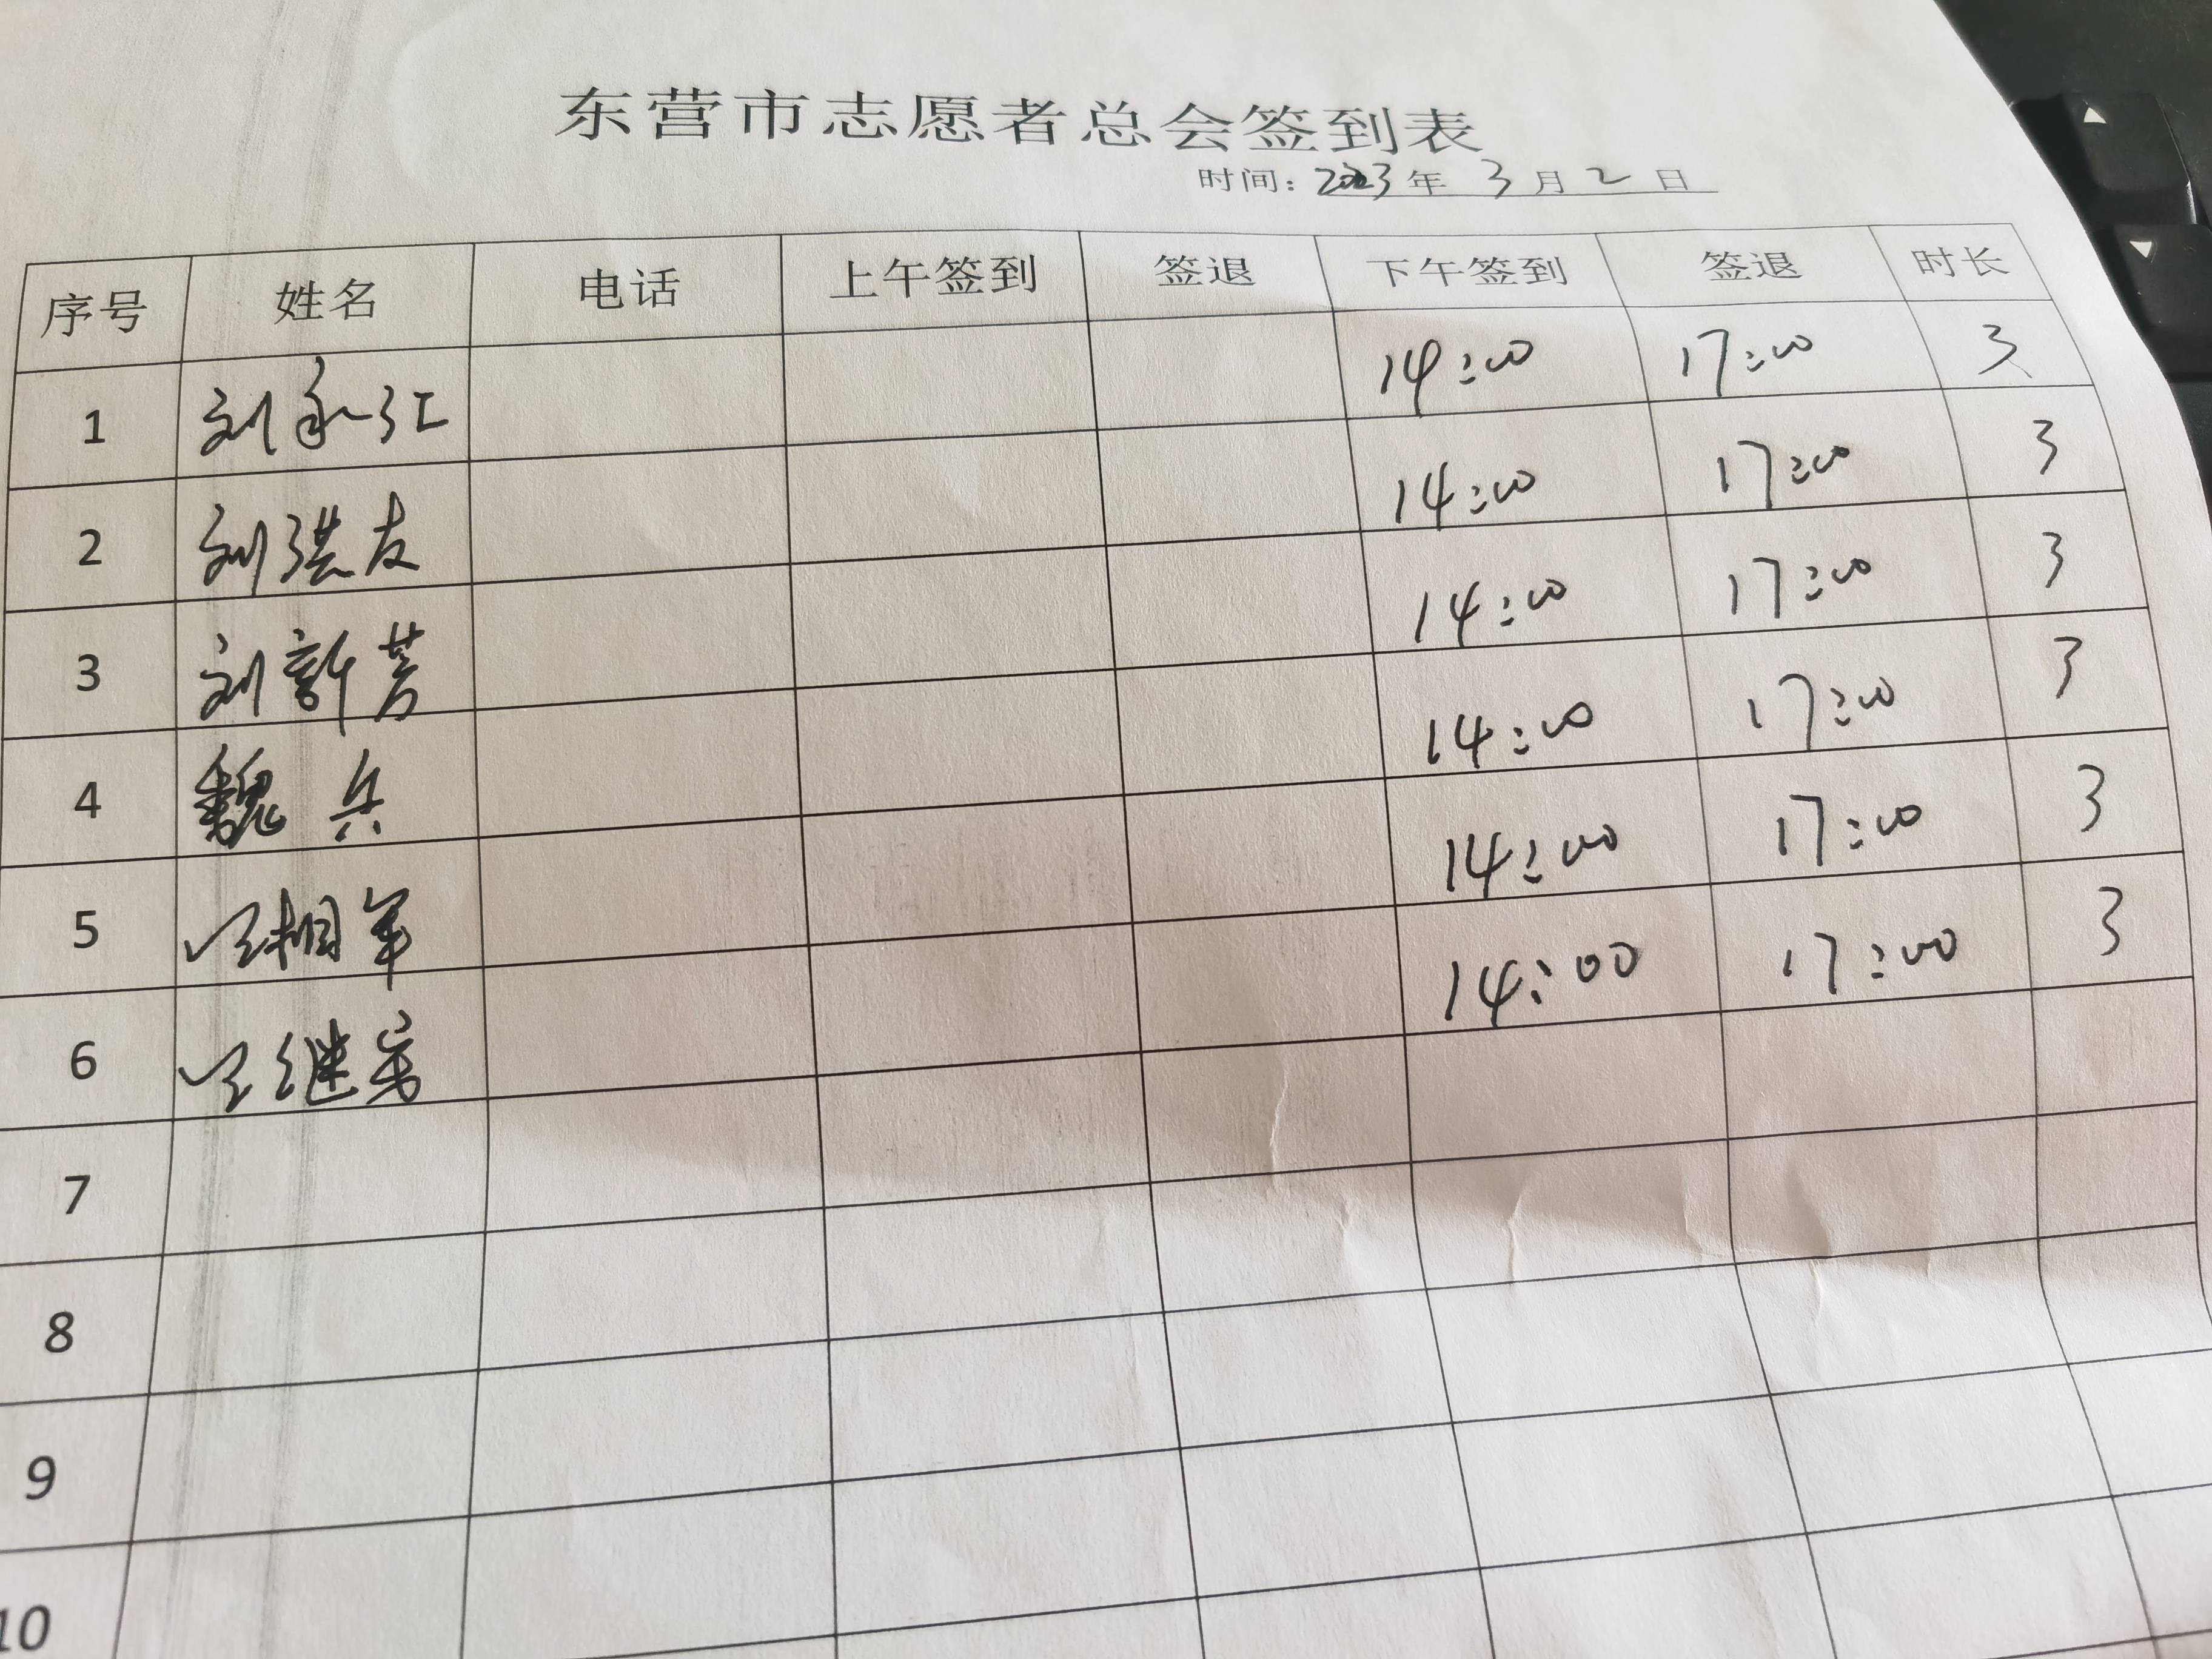 东营市志愿者总会签到表
时间：2023年 3 月 2 日
序号 姓名 电话 上午签到 签退 下午签到 签退 时长
1 刘永江 14:00 17:00 3
2 刘洪友 14:00 17:00 3
3 刘新芳 14:00 17:00 3
4 魏兵 14:00 17:00 3
5 相军 14:00 17:00 3
6 继 14:00 17:00 3
7
8
9
10